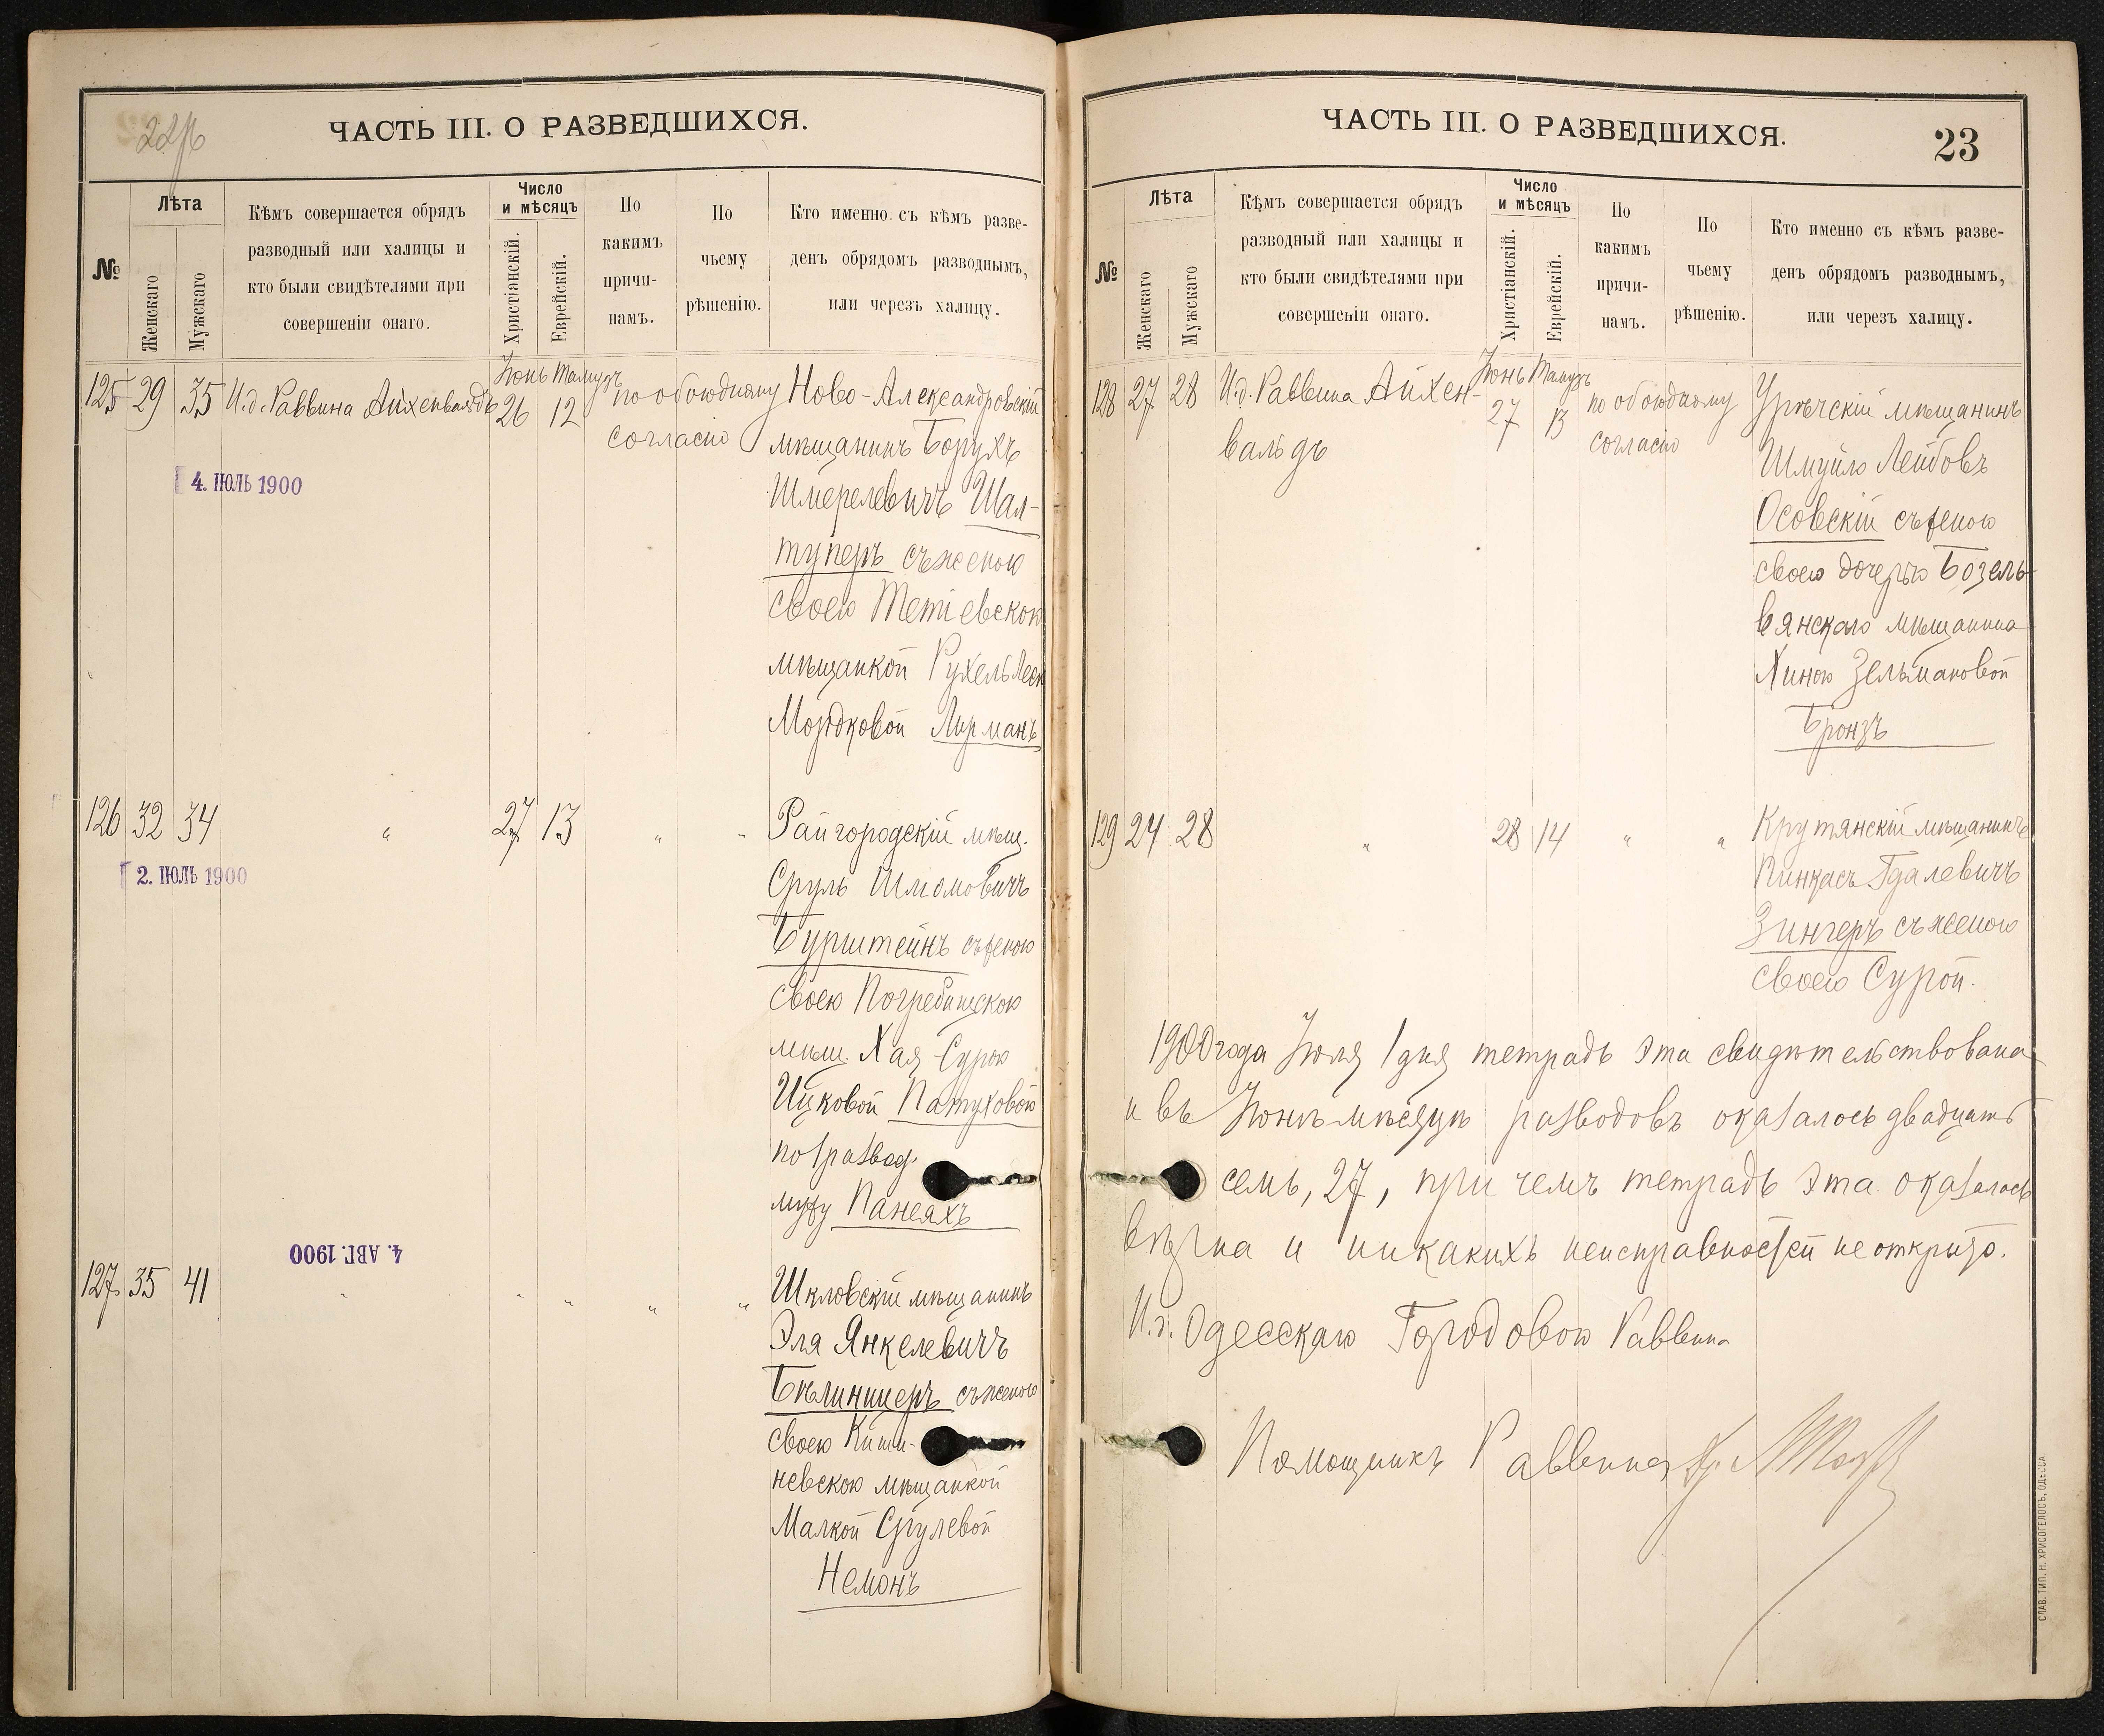 22об
ЧАСТЬ III. О РАЗВЕДШИХСЯ.
№
Лѣта
Женскаго
Мужскаго
Кѣмъ совершается обрядъ
разводный или халицы и
кто были свидѣтелями при
совершеніи онаго.
Число
и мѣсяцъ
Христіанскій.
Еврейскій.
По
какимъ
причи-
намъ.
По
чьему
рѣшенію.
Кто именно съ кѣмъ разве-
денъ обрядомъ разводнымъ,
или черезъ халицу.
Іюнь Тамузъ
125 29 35 И.д. Раввина Айхенвальдъ 26 12 по обоюдному Ново-Александровскій
согласію мѣщанинъ Борухъ
4. ІЮЛЬ 1900
Шмерелевичъ Шал-
туперъ съ женою
своею Тетіевскою
мѣщанкой Рухель Леею
Мордковой Лирманъ
126 32 34 " 27 13 " " Райгородскій мѣщ.
2. ІЮЛЬ 1900
Сруль Шломовичъ
Бурштейнъ съ женою
своею Погребищскою
мѣщ. Хая-Сурою
Ицковой Патуховою
по 1 развод.
мужу Панеяхъ
4. АВГ. 1900
127 35 41 " " " " " Шкловскій мѣщанинъ
Эля Янкелевичъ
Бѣлиницеръ съ женою
своею Киши-
невскою мѣщанкой
Малкой Срулевой
Немонъ
ЧАСТЬ III. О РАЗВЕДШИХСЯ.
23
№
Лѣта
Женскаго
Мужскаго
Кѣмъ совершается обрядъ
разводный или халицы и
кто были свидѣтелями при
совершеніи онаго.
Число
и мѣсяцъ
Христіанскій.
Еврейскій.
По
какимъ
причи-
намъ.
По
чьему
рѣшенію.
Кто именно съ кѣмъ разве-
денъ обрядомъ разводнымъ,
или черезъ халицу.
Іюнь Тамузъ
128 27 28 И.д. Раввина Айхен- 27 13 по обоюдному Урѣчскій мѣщанинъ
вальдъ согласію Шмуйло Лейбовъ
Осовскій съ женою
своею дочерью Бозель-
вянскаго мѣщанина
Хиною Зельмановой
Бронзъ
129 24 28 " 28 14 " " Крутянскій мѣщанинъ
Пинхасъ Гдалевичъ
Зингеръ съ женою
своею Сурой.
1900 года Іюля 1 дня тетрадь эта свидѣтельствована
и въ Іюнѣ мѣсяцѣ разводовъ оказалось двадцать
семь, 27, при чемъ тетрадь эта оказалось
вѣрна и никакихъ неисправностей не открыто.
И.д. Одесскаго Городового Раввина
Помощникъ Раввина
СЛАВ. ТИП. Н. ХРИСОГЕЛОСЪ, ОДЕССА